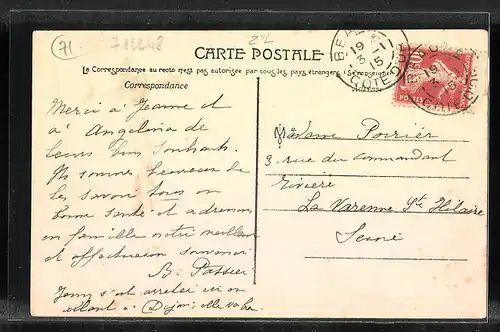 71
712248
CARTE POSTALE
La Correspondance au recto n'est pas autorisée par tous les pays étrangers (Se renseigner
Correspondance
Merci à Jeanne et
à Angelina de
leurs bons souhaits.
Ns sommes heureux de
les savoir tous en
bonne santé et adressons
en famille notre meilleur
et affectueux souvenir
B.
Jeny s'est arrêter ici en
allant à Dijon, elle va bien.
Madame Poirier
3. rue du commandant
Rivière
La Varenne St Hilaire
Seine
19
15
CÔTE D'OR
10
POSTES